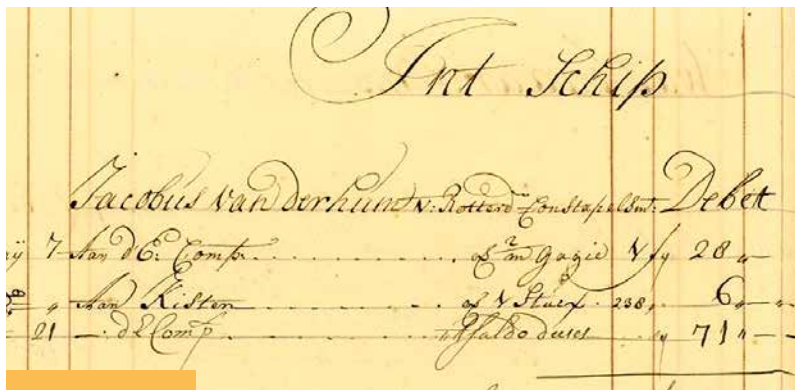 Int Schip
Jacobus van derhum v: Rotterd Constapelsmt: Debet
7 Aan d'E: Comp. of 2/m Gagie 28 "
" Aan Kisten of 1 Stux 238, 6 "
21 — . d E Comp saldo deeses 71 "